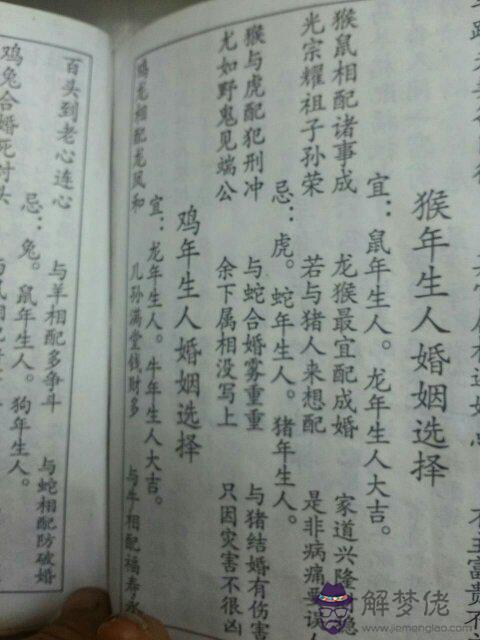 猴年生人婚姻选择
宜：鼠年生人。龙年生人大吉。
猴鼠相配诸事成 龙猴最宜配成婚 家道兴隆
光宗耀祖子孙荣 若与猪人来想配 是非病痛
忌：虎。蛇年生人。猪年生人。
猴与虎配犯刑冲 与蛇合婚雾重重 与猪结婚有伤害
尤如野鬼见端公 余下属相没写上 只因灾害不很凶
鸡年生人婚姻选择
宜：龙年生人。牛年生人大吉。
鸡龙相配龙凤和 儿孙满堂钱财多 与牛相配福寿永
百头到老心连心
忌：兔。鼠年生人。狗年生人。
鸡兔合婚死对头 与羊相配多争斗 与蛇相配防破婚
解梦佬
www.jiemenglao.com